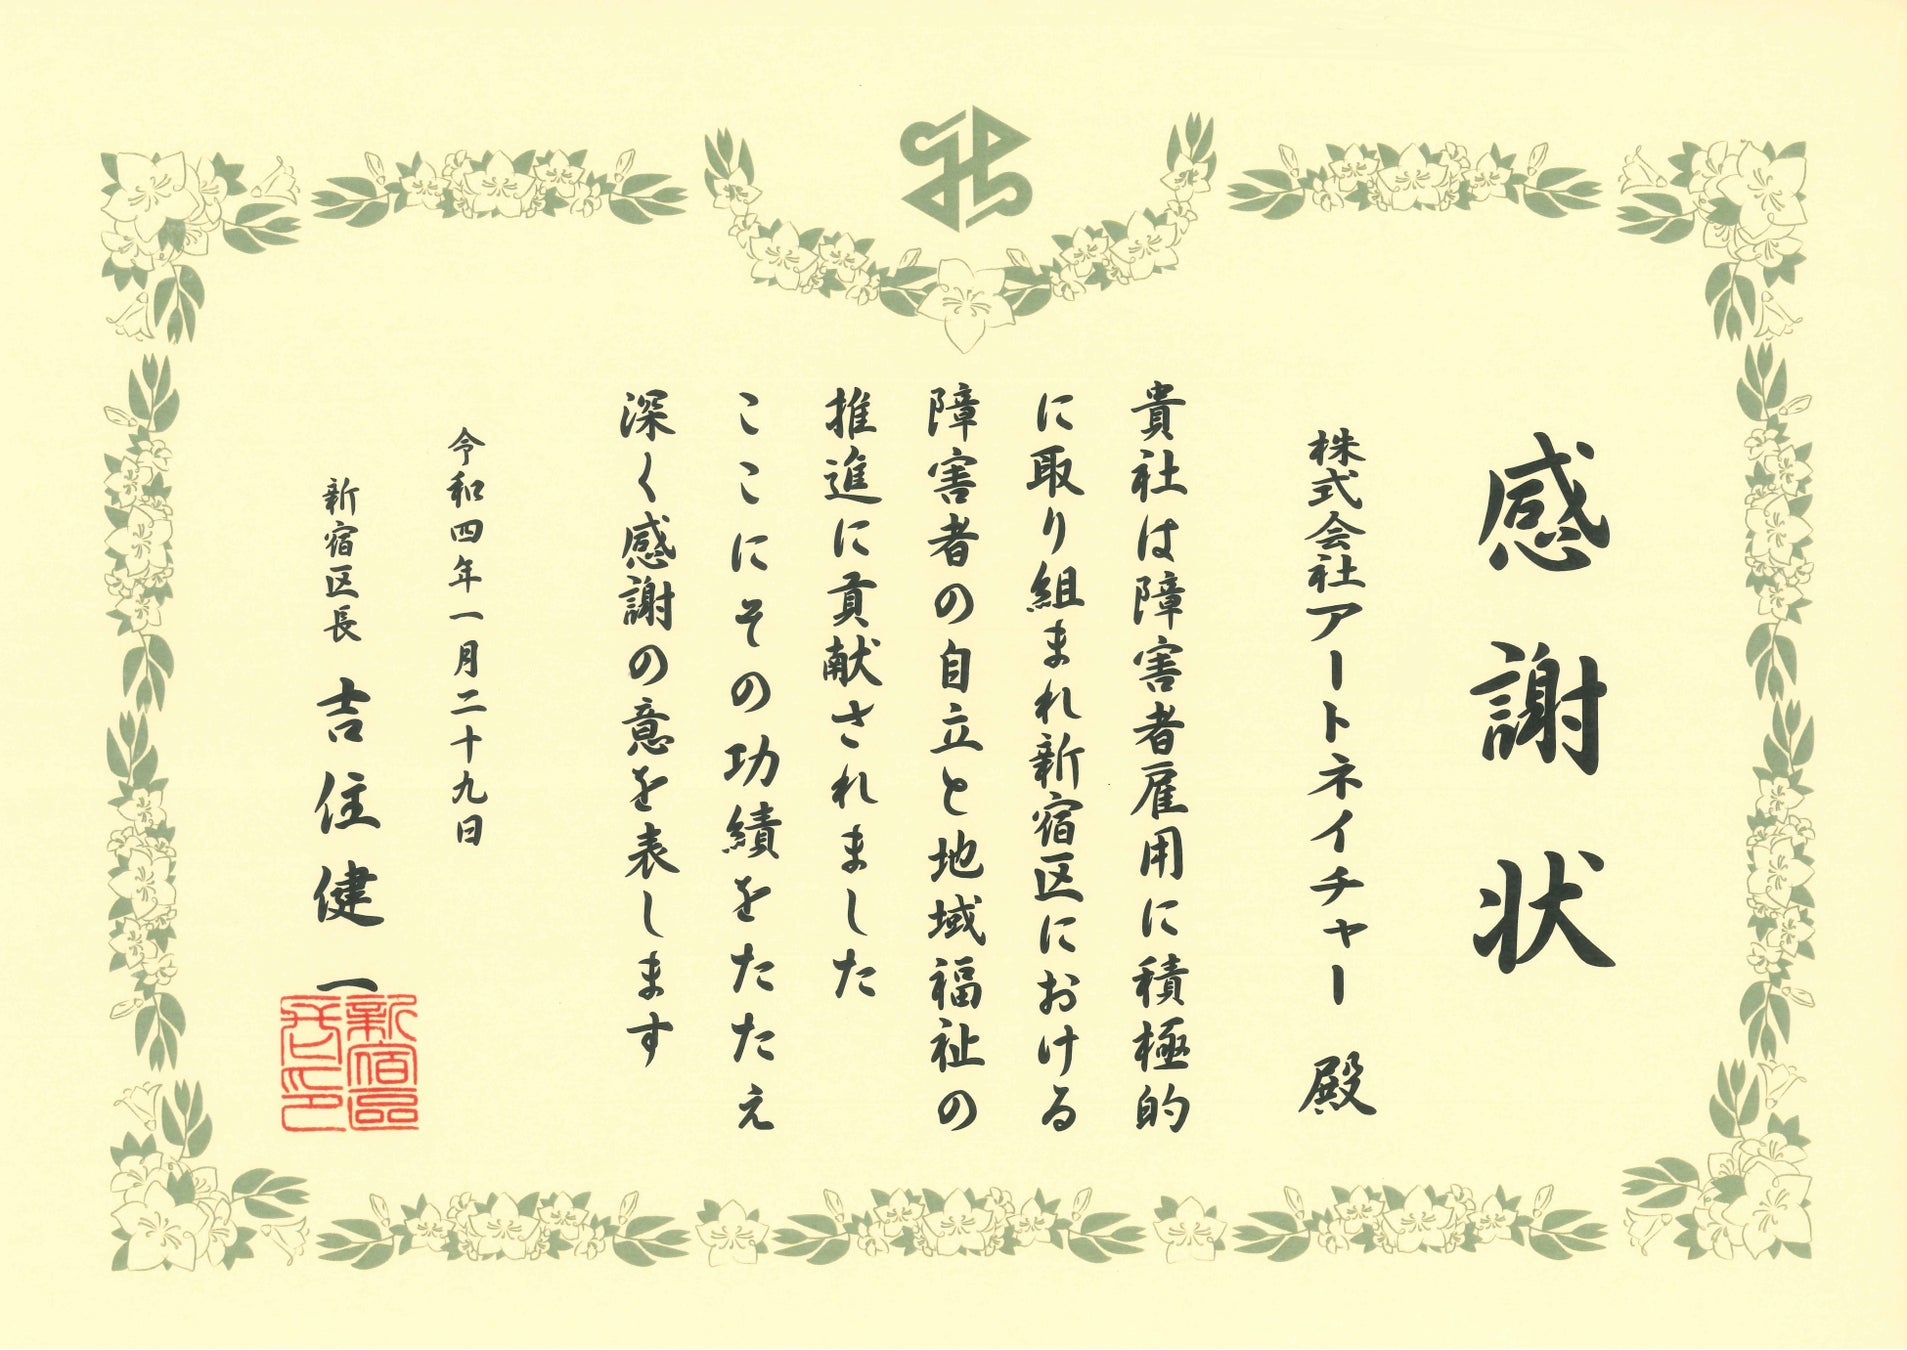 感謝状
株式会社アートネイチャー 殿
貴社は障害者雇用に積極的
に取り組まれ新宿区における
障害者の自立と地域福祉の
推進に貢献されました
ここにその功績をたたえ
深く感謝の意を表します
令和四年一月二十九日
新宿区長 吉住健一
新宿區
長之印